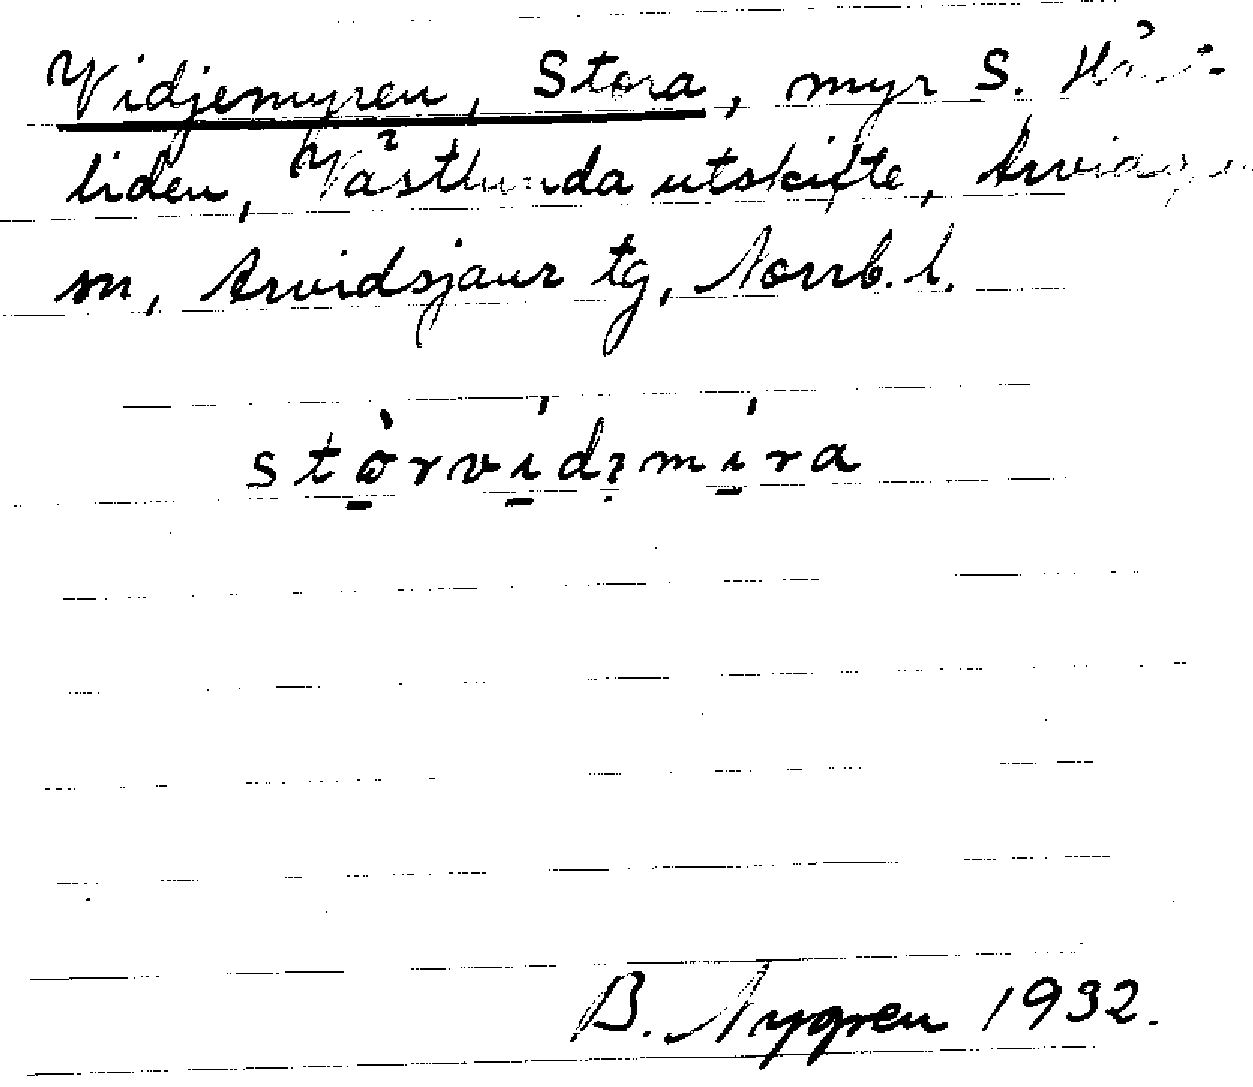 Vidjemyren, Stora, myr S.
liden, Västlunda utskifte,
sn, Arvidsjaur tg, Norrb. l.
stòrvídįmíra
B. Nygren 1932.